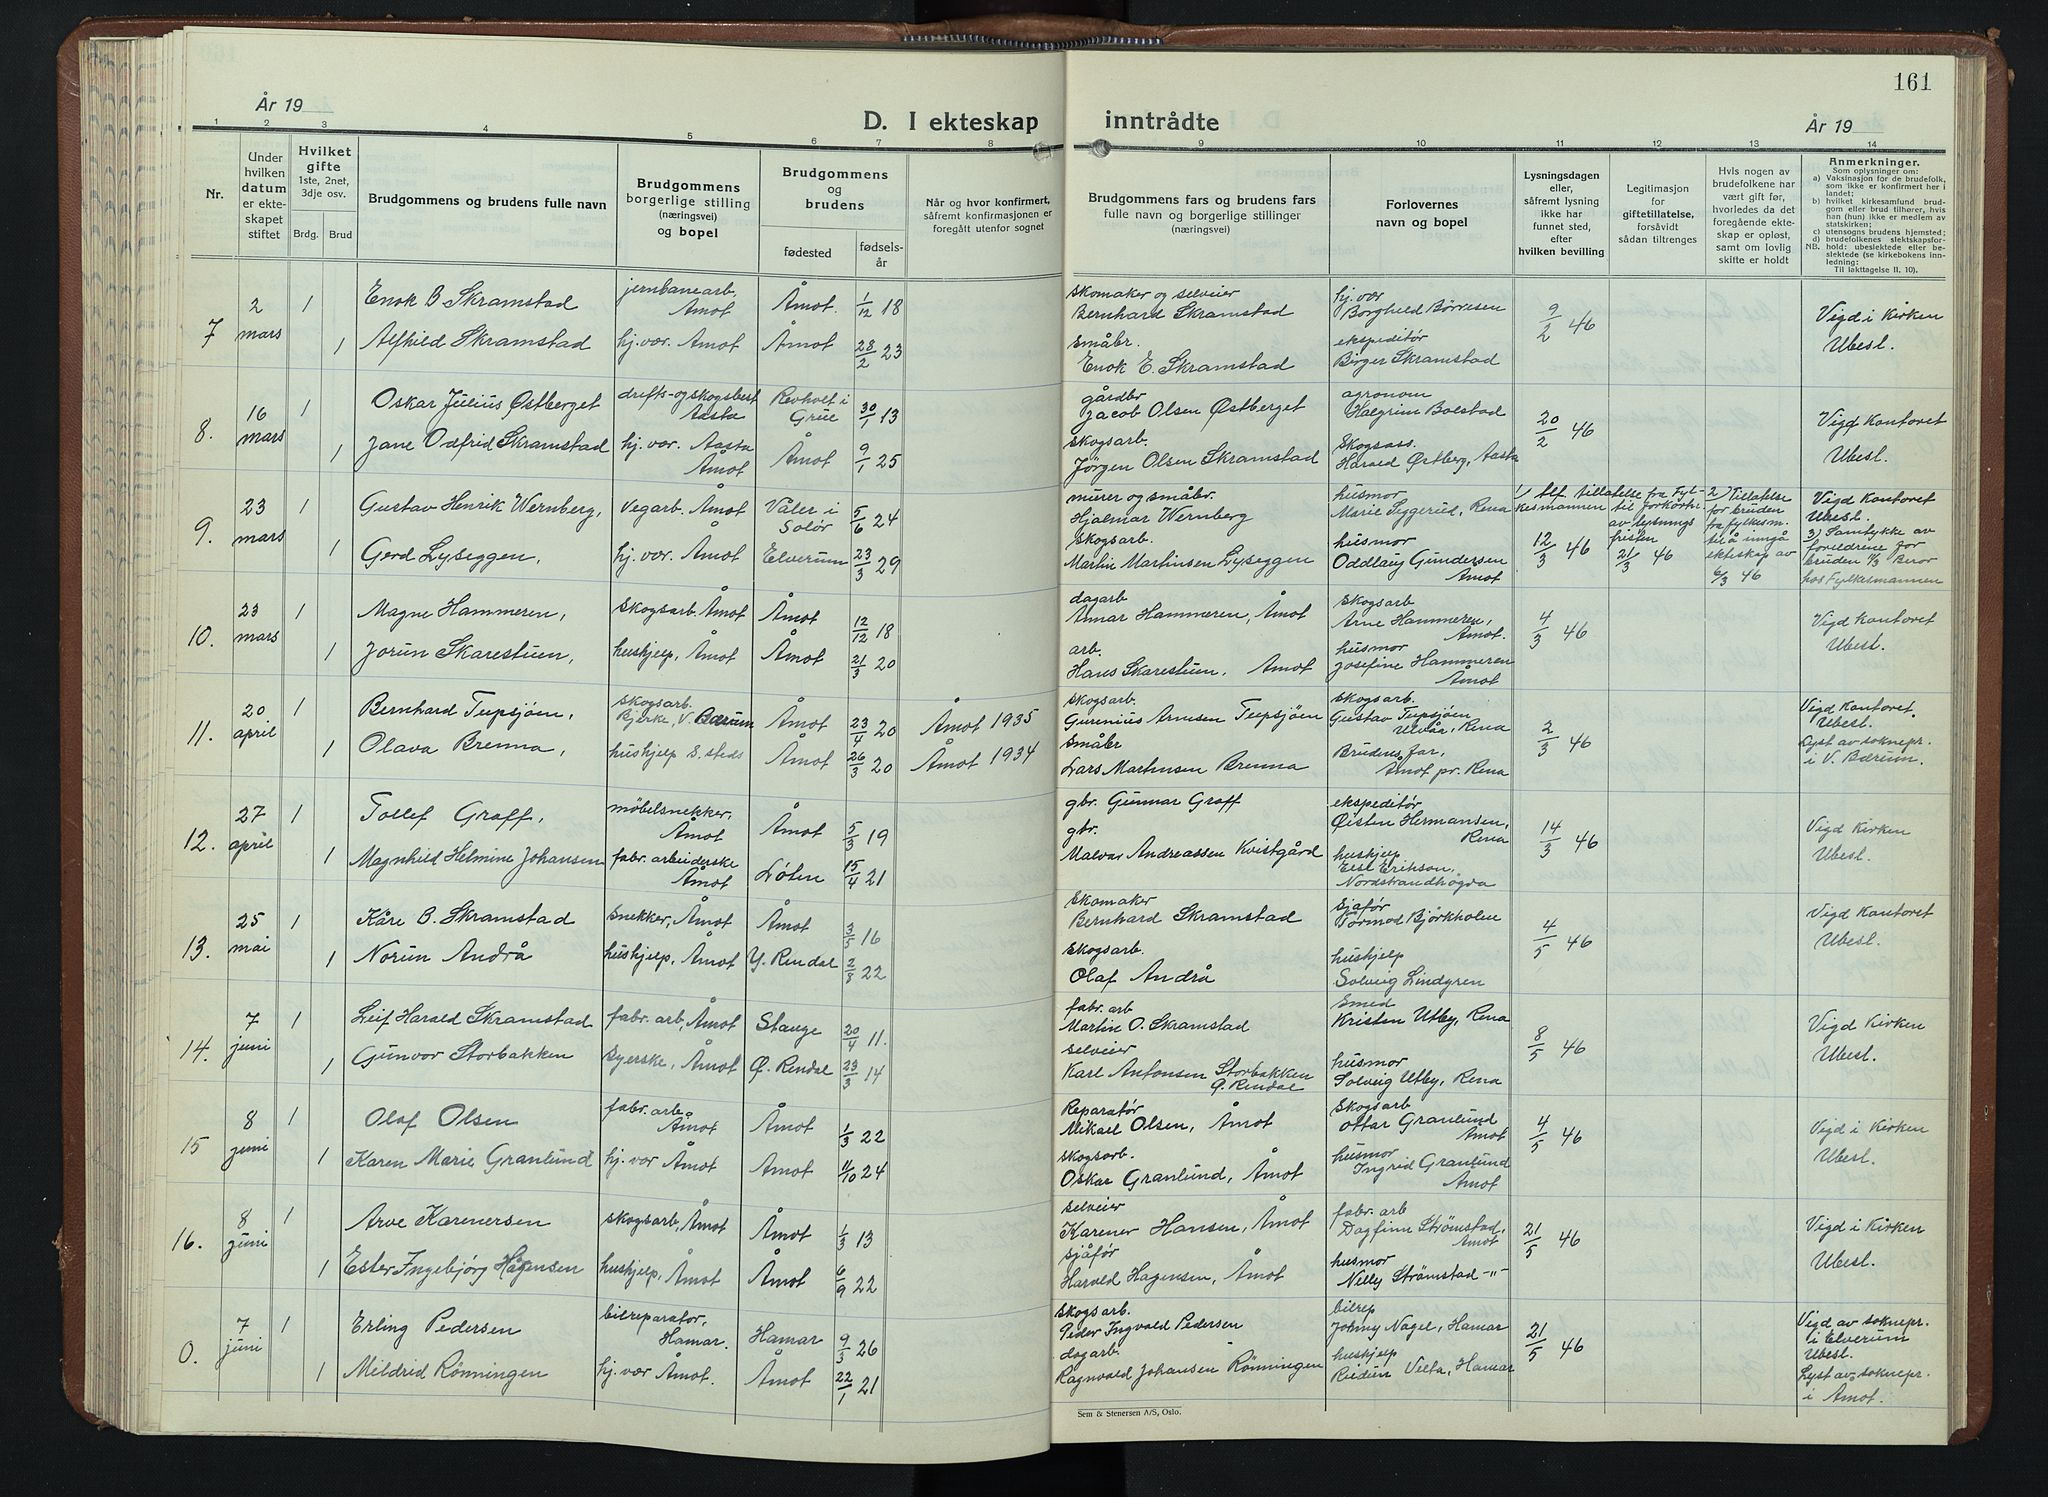 161
År 19
D. I ekteskap inntrådte
År 19
1 2 3 4 5 6 7 8 9 10 11 12 13 14
Nr.
Under hvilken datum er ekteskapet stiftet
Hvilket gifte 1ste, 2net, 3dje osv.
Brdg. Brud
Brudgommens og brudens fulle navn
Brudgommens borgerlige stilling (næringsvei) og bopel
Brudgommens og brudens
fødested fødselsår
Når og hvor konfirmert, såfremt konfirmasjonen er foregått utenfor sognet
Brudgommens fars og brudens fars fulle navn og borgerlige stillinger (næringsvei)
Forlovernes navn og bopel
Lysningsdagen eller, såfremt lysning ikke har funnet sted, efter hvilken bevilling
Legitimasjon for giftetillatelse, forsåvidt sådan tiltrenges
Hvis nogen av brudefolkene har vært gift før, hvorledes da det foregående ekteskap er opløst, samt om lovlig skifte er holdt
Anmerkninger.
Som oplysninger om:
a) Vaksinasjon for de brudefolk, som ikke er konfirmert her i landet;
b) hvilket kirkesamfund brudgom eller brud tilhører, hvis han (hun) ikke er medlem av statskirken;
c) utensogns brudens hjemsted;
d) brudefolkenes slektskapsforhold: ubeslektede eller beslektede (se kirkebokens innledning;
NB. Til iakttagelse II, 10).
7 2 mars 1 Enok B Skramstad jernbanearb. Åmot Åmot. 1/12 18 Skomaker og selveier Bernhard Skramstad hj. vær Borghild Børresen 9/2 46 Vigd i Kirken
1 Alfhild Skramstad hj. vær. Åmot Åmot 28/2 23 Småbr. Enok E. Skramstad ekspeditør Birger Skramstad Ubesl.
8. 16 mars 1 Oskar Julius Østberget drifts- og skogsbest Aasta Revholt i Grue 30/1 13 gårdbr Jacob Olsen Østberget agronom Halgrim Bolstad 20/2 46 Vigd Kontoret
1 Jane Odfrid Skramstad hj. vær. Aasta Åmot Åmot 9/1 25 Skogsarb. Jørgen Olsen Skramstad Skogsass. Harald Østberg, Aasta Ubesl.
9. 23 mars 1 Gustav Henrik Wernberg, vegarb. Åmot Våler i Solør 5/6 24 murer og småbr. Hjalmar Wernberg husmor Marie Syggerud, Rena 12/3 46 1/ tlf tillatelse fra Fylkesmannen til forkortn. av lysningsfristen 21/3 46 2/ Tillatelse for bruden fra fylkesm. til å inngå ekteskap av 6/3 46 Vigd Kontoret Ubesl.
1 Gerd Lyseggen, hj. vær. Åmot Elverum 23/3 29 Skogsarb. Martin Martinsen Lyseggen husmor Oddlaug Gundersen Åmot 3) Samtykke av foreldrene for bruden 11/3 Beror hos Fylkesmannen
10. 23 mars 1 Magne Hammeren, Skogsarb. Åmot Åmot 12/12 18 dagarb. Annar Hammeren, Åmot Skogsarb Arne Hammeren, Åmot. 4/3 46 Vigd Kontoret
1 Jorun Skarestuen, hushjelp, Åmot Åmot 21/3 20 arb. Hans Skarestuen, Åmot husmor Josefine Hammeren Åmot Ubesl.
11. 20 april 1 Bernhard Tupsjøen, Skogsarb. Bjerke, V. Bærum Åmot 23/4 20 Åmot 1935 Skogsarb Gurenius Arnesen Tupsjøen Skogsarb. Gustav Tupsjøen Ulvår, Rena 2/3 46 Vigd Kontoret. Ubesl.
1 Olava Brenna, hushjelp S. steds Åmot 26/3 20 Åmot 1934 Småbr Lars Martinsen Brenna Brudens far, Åmot pr. Rena Lyst av soknepr. i V. Bærum.
12. 27 april 1 Tollef Graff, møbelsnekker, Åmot Åmot 5/3 19 gbr. Gunnar Graff ekspeditør Øisten Hermansen, Rena 14/3 46 Vigd Kirken
1 Magnhild Helmine Johansen fabr. arbeiderske Åmot Løten 15/4 21 gbr. Malvar Andreassen Kvistgård hushjelp Eisl Erikson, Nordstrandhøgda Ubesl.
13. 25 mai 1 Kåre B. Skramstad snekker, Åmot Åmot 3/5 16 Skomaker Bernhard Skramstad Sjåfør Tormod Bjørkholen 4/5 46 Vigd Kontoret
1 Norun Andrå hushjelp, Åmot Y. Rendal 2/3 22 Skogsarb. Olaf Andrå hushjelp Solveig Lindgren Ubesl.
14. 7 juni 1 Leif Harald Skramstad fabr. arb, Åmot Stange 20/4 11. fabr. arb Martin O. Skramstad Smed Kristen Utby, Rena 8/5 46 Vigd Kirken
1 Gunvor Storbakken Syerske, Åmot Ø. Rendal 23/3 14 selveier Karl Antonsen Storbakken Ø. Rendal husmor Solveig Utby, Rena Ubesl.
15 8 juni 1 Olaf Olsen fabr. arb Åmot Åmot 1/3 22 Reparatør Mikael Olsen, Åmot Skogsarb Ottar Granlund Åmot 4/5 46 Vigd i Kirken
1 Karen Marie Granlund hj. vær Åmot Åmot 11/10 24 skogsarb. Oskar Granlund, Åmot husmor Ingrid Granlund Åmot Ubesl.
16. 8 juni 1 Arve Karenersen skogsarb, Åmot Åmot 1/3 13 selveier Karener Hansen, Åmot fabr. arb Dagfinn Strømstad, Åmot 21/5 46 Vigd i Kirken
1 Ester Ingebjørg Hagensen hushjelp, Åmot Åmot 6/9 22 sjåfør Harald Hagensen, Åmot husmor Nelly Strømstad -"- Ubesl.
0. 7 juni 1 Erling Pedersen bilreparatør, Hamar. Hamar 9/3 26 Skogsarb. Peder Ingvald Pedersen bilrep Johnny Nagel, Hamar 21/5 46 Vigd av soknepr. i Elverum Ubesl.
1 Mildrid Rønningen hj. vær Åmot. Åmot 22/1 21 dagarb. Ragnvald Johansen Rønningen hushjelp Reidun Velta, Hamar Lyst av soknepr. i Åmot.
Sem & Stenersen A/S, Oslo.